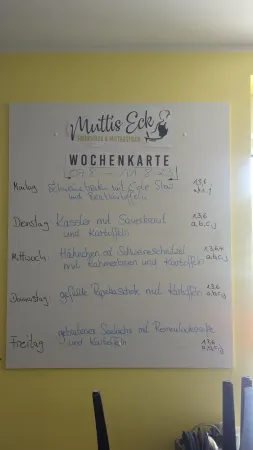 Muttis Eck
FRÜHSTÜCK & MITTAGSTISCH
WOCHENKARTE
Montag
mit Cole Slaw
und Bratkartoffeln
Dienstag
Kassler mit Sauerkraut
und Kartoffeln
1,3,6
a,b,c,j
Mittwoch
Hähnchen od. Schweineschnitzel
mit Rahmerbsen und Kartoffeln
1,3,6,4
a,b,c,j
Donnerstag
gefüllte Paprikaschote mit Kartoffeln
1,3,6
a,b,c,j
Freitag
gebratener Seelachs mit Remouladensoße
und Kartoffeln
1,3,6